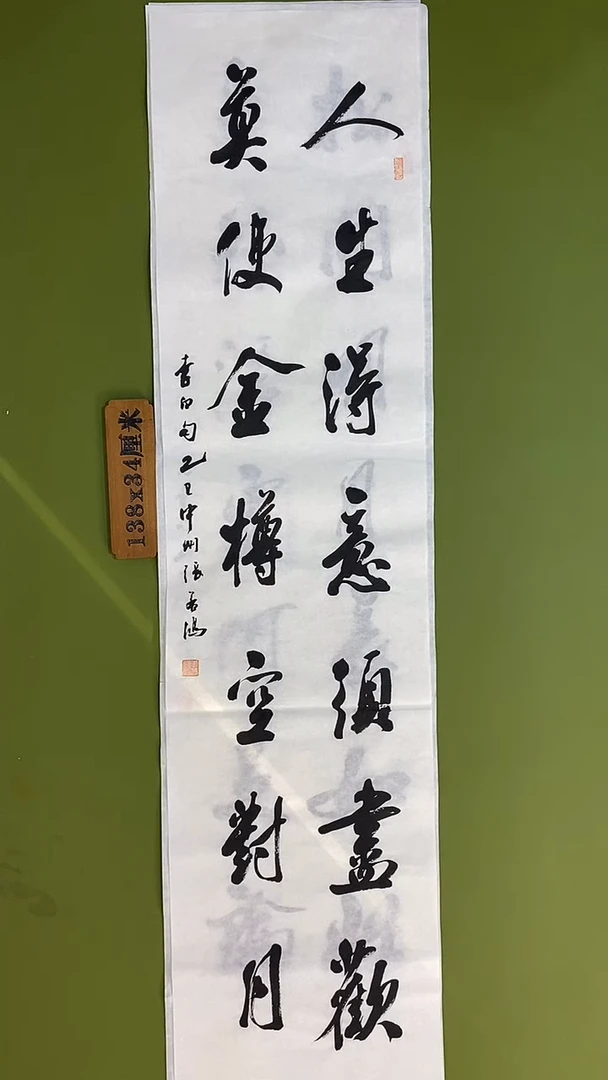 人生得意須盡歡
莫使金樽空對月
李白句乙巳中州張
138x34厘米